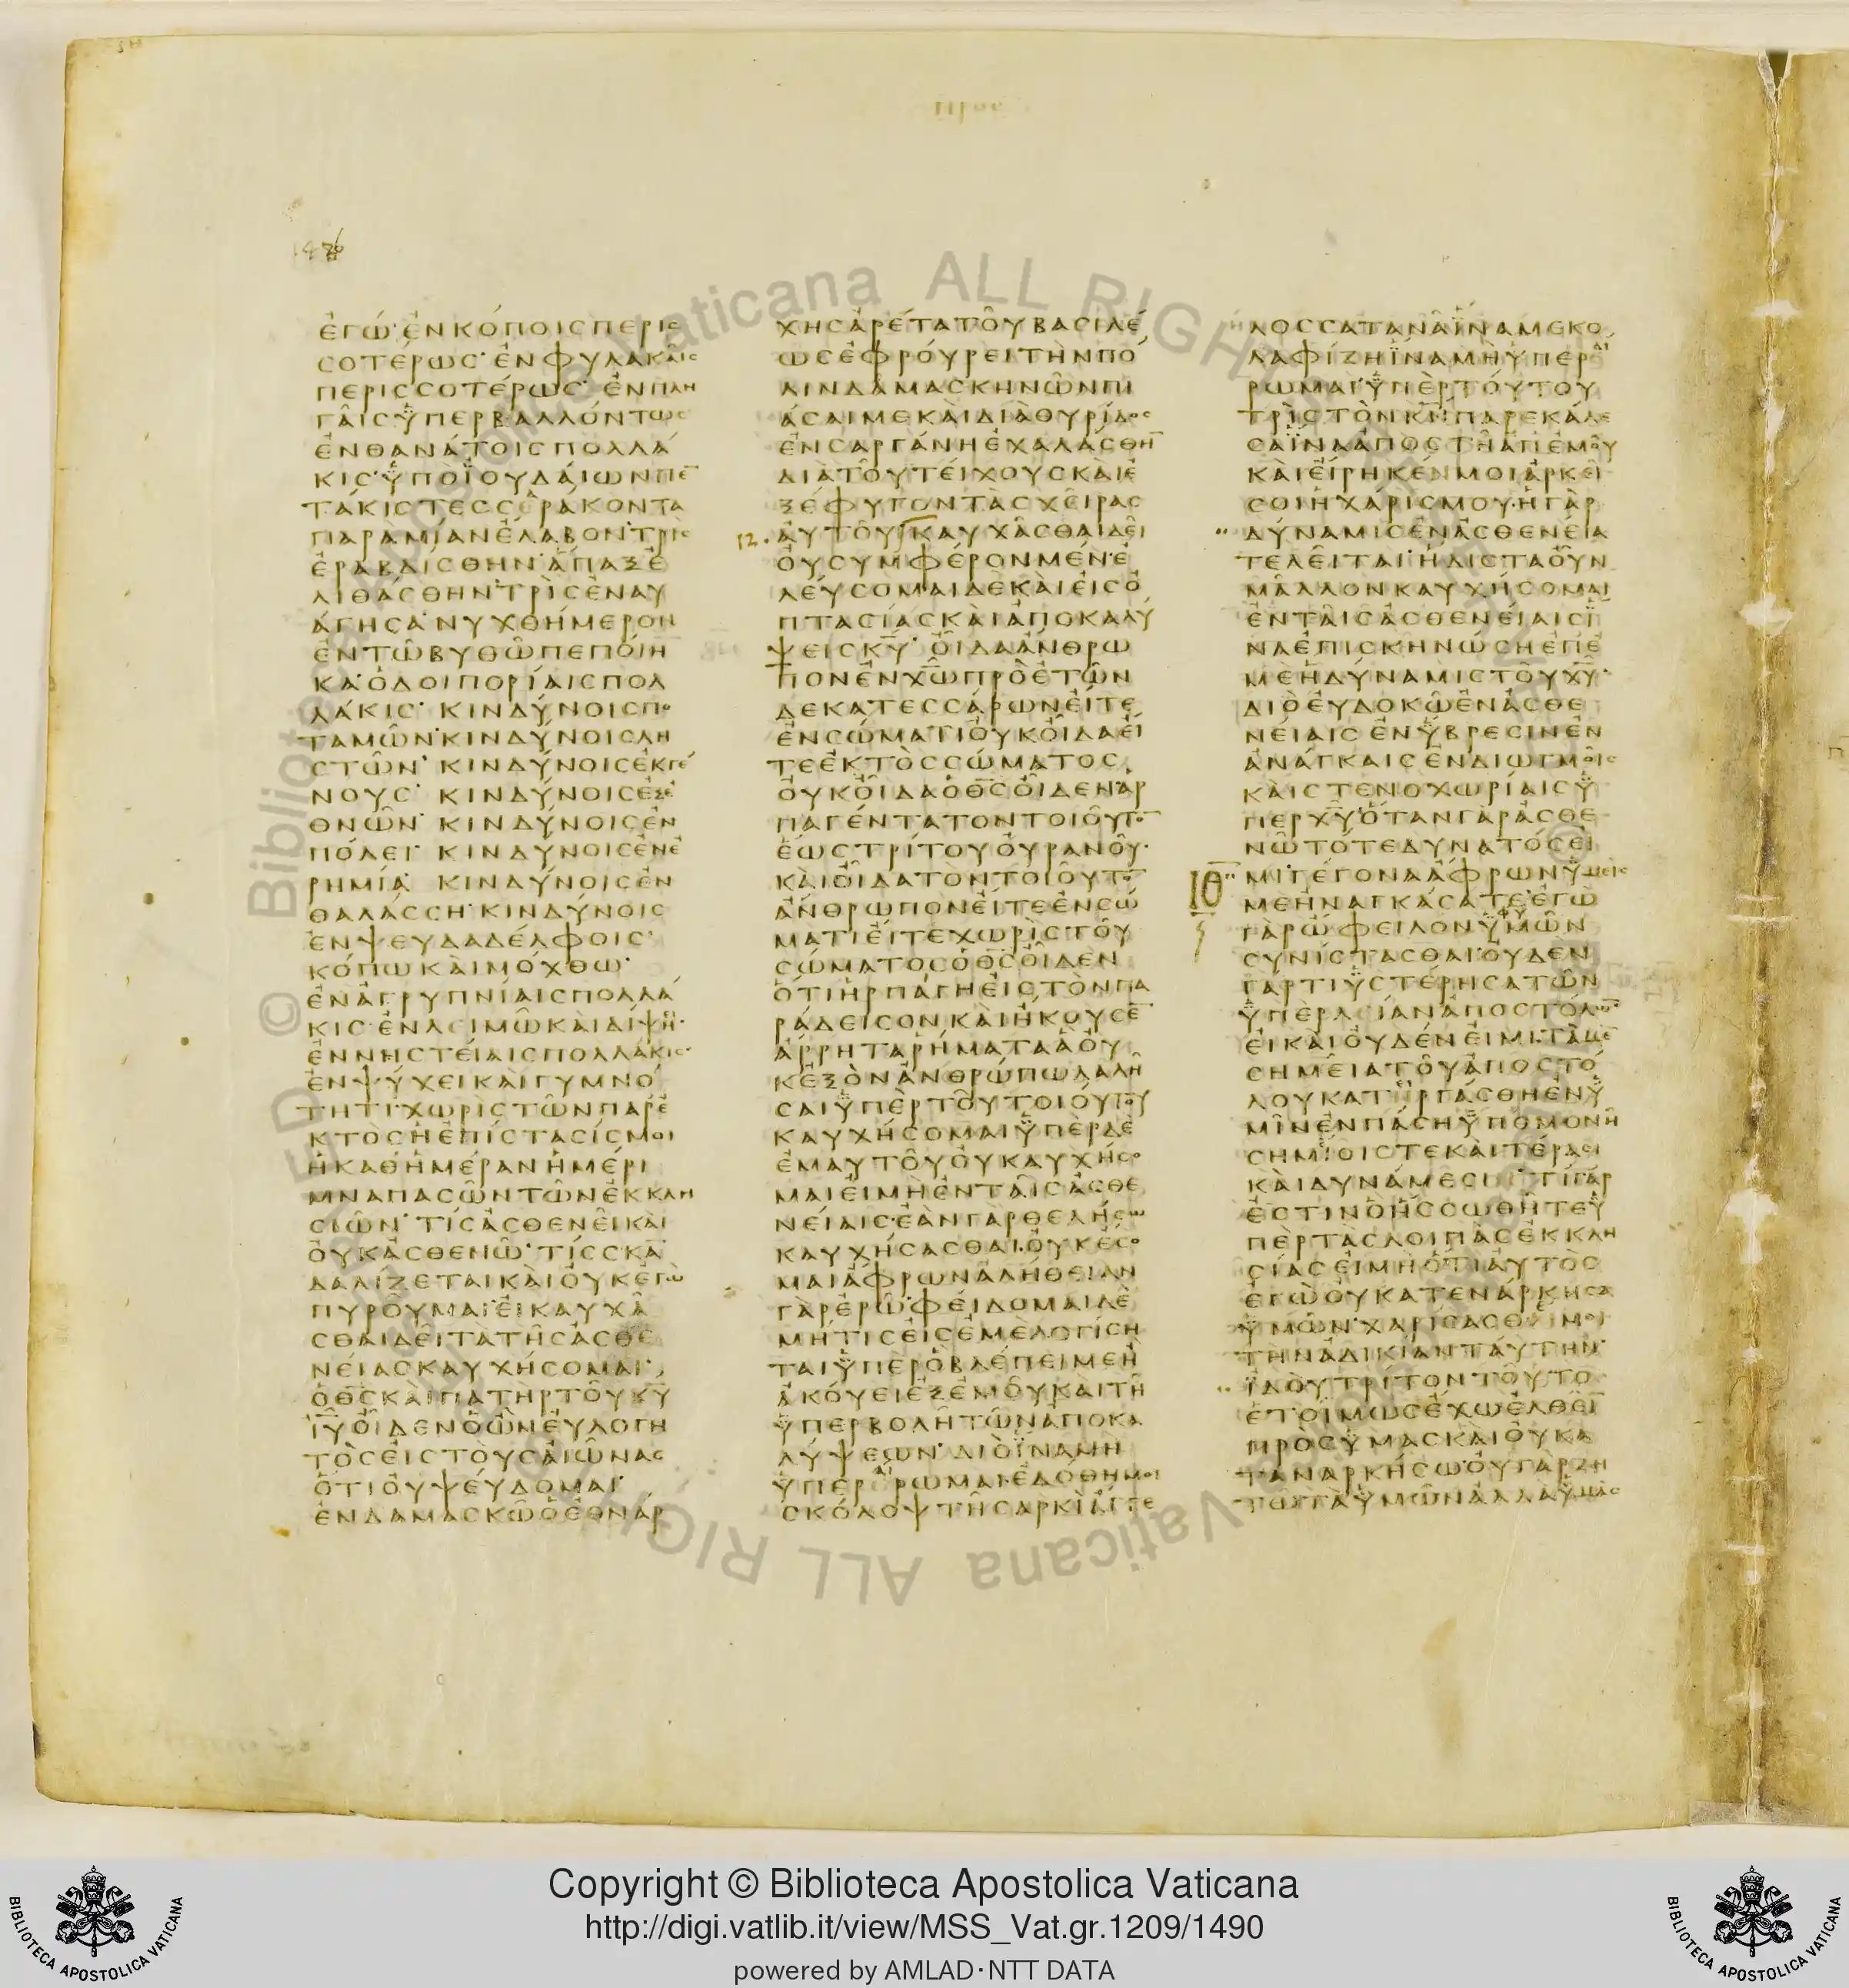 1476
ἐγώ· ἐν κόποις περισ
σοτέρως· ἐν φυλακαῖς
περισσοτέρως· ἐν πλη
γαῖς ὑπερβαλλόντως
ἐν θανάτοις πολλά
κις· ὑπὸ ἰουδαίων πε̄
τάκις τεσσεράκοντα
παρὰ μίαν ἔλαβον· τρὶς
ἐραβδίσθην· ἅπαξ ἐ
λιθάσθην· τρὶς ἐναυ
άγησα· νυχθήμερον
ἐν τῶ βυθῶ πεποίη
κα· ὁδοιπορίαις πολ
λάκις· κινδύνοις πο
ταμῶν· κινδύνοις λη
στῶν· κινδύνοις ἐκ γέ
νους· κινδύνοις ἐξ ἐ
θνῶν· κινδύνοις ἐν
πόλει· κινδύνοις ἐν ἐ
ρημία· κινδύνοις ἐν
θαλάσση· κινδύνοις
ἐν ψευδαδέλφοις·
κόπω καὶ μόχθω·
ἐν ἀγρυπνίαις πολλά
κις· ἐν λειμῶ καὶ δίψη·
ἐν νηστείαις πολλάκις·
ἐν ψύχει καὶ γυμνό
τητι· χωρὶς τῶν παρε
κτὸς ἡ ἐπίστασίς μοι
ἡ καθ ἡμέραν ἡ μέρι
μνα πασῶν τῶν ἐκκλη
σιῶν· τίς ἀσθενεῖ καὶ
οὐκ ἀσθενῶ· τίς σκᾱ
δαλίζεται καὶ οὐκ ἐγὼ
πυροῦμαι· εἰ καυχᾶ
σθαι δεῖ τὰ τῆς ἀσθε
νείας καυχήσομαι·
ὁ θ̄ς̄ καὶ πατὴρ τοῦ κ̄ῡ
ῑῡ οἶδεν ὁ ὢν εὐλογη
τὸς εἰς τοὺς αἰῶνας
ὅτι οὐ ψεύδομαι·
ἐν δαμασκῶ ὁ ἐθνάρ
χης ἀρέτα τοῦ βασιλέ
ως ἐφρούρει τὴν πό
λιν δαμασκηνῶν πι
άσαι με καὶ διὰ θυρίδος
ἐν σαργάνη ἐχαλάσθη̄
διὰ τοῦ τείχους καὶ ἐ
ξέφυγον τὰς χεῖρας
12. αὐτοῦ· καυχᾶσθαι δεῖ
οὐ συμφέρον μέν· ἐ
λεύσομαι δὲ καὶ εἰς ὀ
πτασίας καὶ ἀποκαλύ
ψεις κ̄ῡ· οἶδα ἄνθρω
πον ἐν χ̄ω̄ πρὸ ἐτῶν
δεκατεσσάρων εἴτε
ἐν σώματι οὐκ οἶδα εἴ
τε ἐκτὸς σώματος
οὐκ οἶδα ὁ θ̄ς̄ οἶδεν ἁρ
παγέντα τὸν τοιοῦτο̄
ἕως τρίτου οὐρανοῦ·
καὶ οἶδα τὸν τοιοῦτο̄
ἄνθρωπον εἴτε ἐν σώ
ματι εἴτε χωρὶς τοῦ
σώματος ὁ θ̄ς̄ οἶδεν
ὅτι ἡρπάγη εἰς τὸν πα
ράδεισον καὶ ἤκουσε̄
ἄρρητα ῥήματα ἃ οὐ
κ ἐξὸν ἀνθρώπω λαλῆ
σαι ὑπὲρ τοῦ τοιούτου
καυχήσομαι ὑπὲρ δὲ
ἐμαυτοῦ οὐ καυχήσο
μαι εἰ μὴ ἐν ταῖς ἀσθε
νείαις· ἐὰν γὰρ θελήσω
καυχήσασθαι· οὐκ ἔσο
μαι ἄφρων ἀλήθειαν
γὰρ ἐρῶ· φείδομαι δὲ
μή τις εἰς ἐμὲ λογίση
ται ὑπὲρ ὃ βλέπει με ἢ
ἀκούει ἐξ ἐμοῦ καὶ τῆ
ὑπερβολῆ τῶν ἀποκα
λύψεων· διὸ ἵνα μὴ
ὑπεραίρωμαι· ἐδόθη μοι
σκόλοψ τῆ σαρκὶ ἄγγε
λος σατανᾶ ἵνα με κο
λαφίζη ἵνα μὴ ὑπεραί
ρωμαι· ὑπὲρ τούτου
τρὶς τὸν κ̄ν̄ παρεκάλε
σα ἵνα ἀποστῆ ἀπ ἐμοῦ
καὶ εἴρηκέν μοι ἀρκεῖ
σοι ἡ χάρις μου· ἡ γὰρ
δύναμις ἐν ἀσθενεία
τελεῖται· ἥδιστα οὖν
μᾶλλον καυχήσομαι
ἐν ταῖς ἀσθενείαις ἵ
να ἐπισκηνώση ἐπ ἐ
μὲ ἡ δύναμις τοῦ χ̄ῡ·
διὸ εὐδοκῶ ἐν ἀσθε
νείαις ἐν ὕβρεσιν ἐν
ἀνάγκαις ἐν διωγμοῖς
καὶ στενοχωρίαις ὑ
πὲρ χ̄ῡ· ὅταν γὰρ ἀσθε
νῶ τότε δυνατός εἰ
ΙΘ μι· γέγονα ἄφρων ὑμεῖς
με ἠναγκάσατε· ἐγὼ
γὰρ ὤφειλον ὑφ ὑμῶν
συνίστασθαι· οὐδὲν
γάρ τι ὑστέρησα τῶν
ὑπὲρ λίαν ἀποστόλω̄
εἰ καὶ οὐδέν εἰμι· τὰ μὲ̄
σημεῖα τοῦ ἀποστό
λου κατηργάσθη ἐν ὑ
μῖν ἐν πάση ὑπομονῆ
σημείοις τε καὶ τέρασι
καὶ δυνάμεσι· τί γάρ
ἐστιν ὃ ἡσσώθητε ὑ
πὲρ τὰς λοιπὰς ἐκκλη
σίας εἰ μὴ ὅτι αὐτὸς
ἐγὼ οὐ κατενάρκησα
ὑμῶν· χαρίσασθέ μοι
τὴν ἀδικίαν ταύτην·
ἰδοὺ τρίτον τοῦτο
ἑτοίμως ἔχω ἐλθεῖ̄
πρὸς ὑμᾶς καὶ οὐ κα
ταναρκήσω· οὐ γὰρ ζη
τῶ τὰ ὑμῶν ἀλλὰ ὑμᾶς
Copyright © Biblioteca Apostolica Vaticana
http://digi.vatlib.it/view/MSS_Vat.gr.1209/1490
powered by AMLAD·NTT DATA
BIBLIOTECA APOSTOLICA VATICANA
BIBLIOTECA APOSTOLICA VATICANA